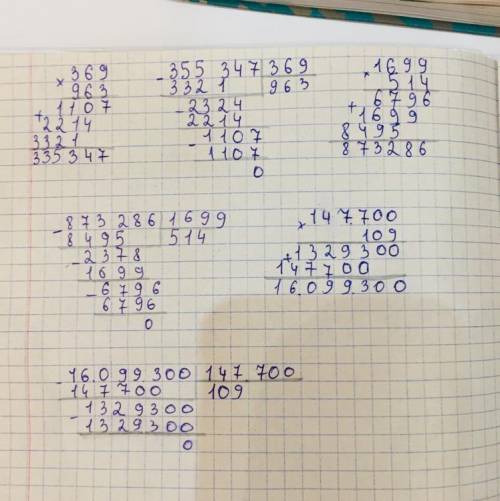 369
× 963
1107
+ 2214
3321
335347
- 355 347 | 369
3321 | 963
- 2324
2214
- 1107
1107
0
1699
× 514
+ 6796
1699
8495
873286
- 873 286 | 1699
8495 | 514
- 2378
1699
- 6796
6796
0
147.700
× 109
+ 1329300
147700
16.099.300
- 16.099 300 | 147 700
147700 | 109
- 1329300
1329300
0